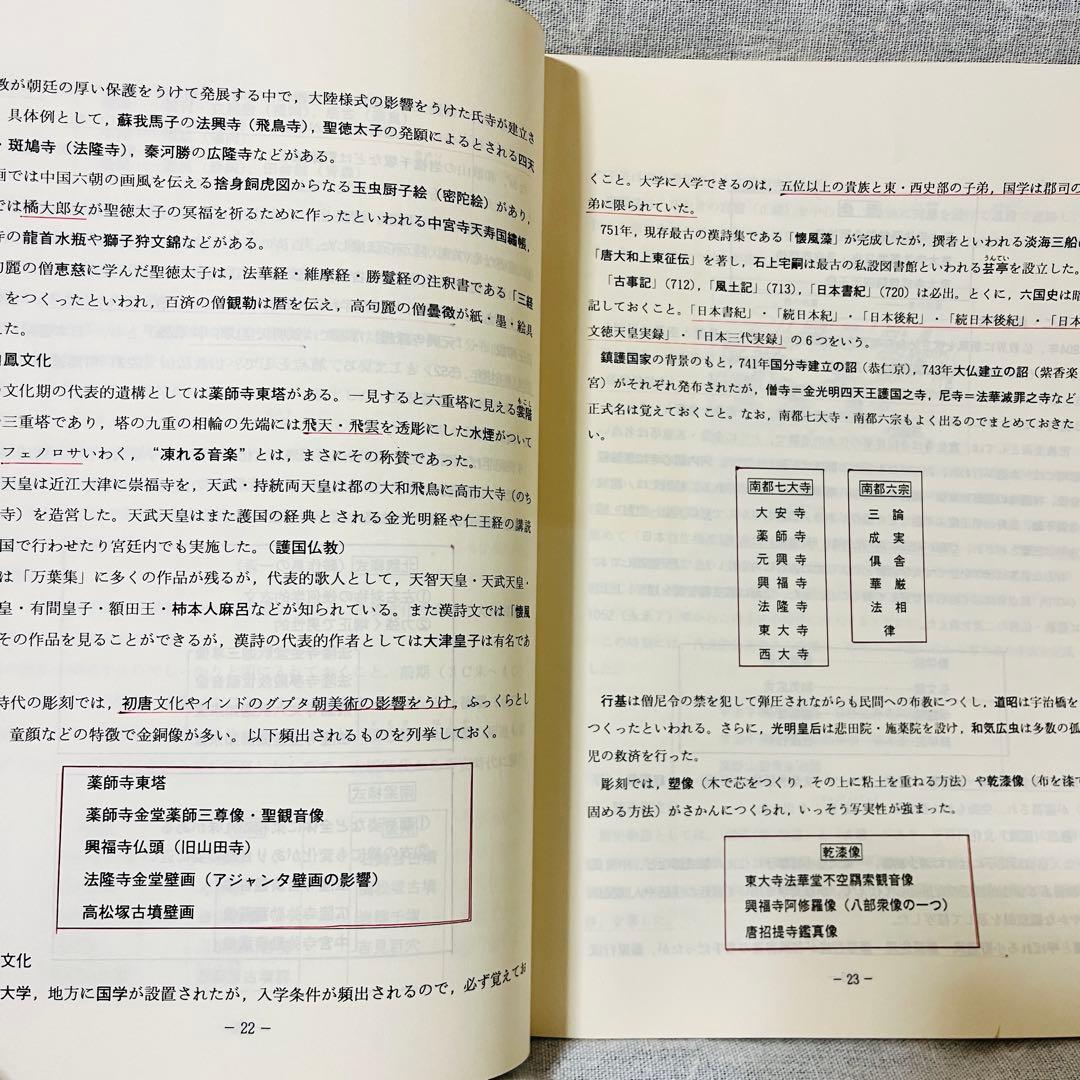 教が朝廷の厚い保護をうけて発展する中で，大陸様式の影響をうけた氏寺が建立さ
具体例として，蘇我馬子の法興寺（飛鳥寺），聖徳太子の発願によるとされる四天
・斑鳩寺（法隆寺），秦河勝の広隆寺などがある。
画では中国六朝の画風を伝える捨身飼虎図からなる玉虫厨子絵（密陀絵）があり，
では橘大郎女が聖徳太子の冥福を祈るために作ったといわれる中宮寺天寿国繡帳，
寺の龍首水瓶や獅子狩文錦などがある。
句麗の僧恵慈に学んだ聖徳太子は，法華経・維摩経・勝鬘経の注釈書である「三経
をつくったといわれ，百済の僧観勒は暦を伝え，高句麗の僧曇徴が紙・墨・絵具
えた。
白鳳文化
文化期の代表的遺構としては薬師寺東塔がある。一見すると六重塔に見える裳階
もこし
三重塔であり，塔の九重の相輪の先端には飛天・飛雲を透彫にした水煙がついて
フェノロサいわく，“凍れる音楽”とは，まさにその称賛であった。
天皇は近江大津に崇福寺を，天武・持統両天皇は都の大和飛鳥に高市大寺（のち
寺）を造営した。天武天皇はまた護国の経典とされる金光明経や仁王経の講説
国で行わせたり宮廷内でも実施した。（護国仏教）
は「万葉集」に多くの作品が残るが，代表的歌人として，天智天皇・天武天皇・
皇・有間皇子・額田王・柿本人麻呂などが知られている。また漢詩文では「懐風
その作品を見ることができるが，漢詩の代表的作者としては大津皇子は有名であ
時代の彫刻では，初唐文化やインドのグプタ朝美術の影響をうけ，ふっくらとし
童顔などの特徴で金銅像が多い。以下頻出されるものを列挙しておく。
薬師寺東塔
薬師寺金堂薬師三尊像・聖観音像
興福寺仏頭（旧山田寺）
法隆寺金堂壁画（アジャンタ壁画の影響）
高松塚古墳壁画
文化
大学，地方に国学が設置されたが，入学条件が頻出されるので，必ず覚えてお
－ 22 －
くこと。大学に入学できるのは，五位以上の貴族と東・西史部の子弟，国学は郡司の
弟に限られていた。
751年，現存最古の漢詩集である「懐風藻」が完成したが，撰者といわれる淡海三船の
うんてい
「唐大和上東征伝」を著し，石上宅嗣は最古の私設図書館といわれる芸亭を設立した。
「古事記」（712），「風土記」（713），「日本書紀」（720）は必出。とくに，六国史は暗
記しておくこと。「日本書紀」・「続日本紀」・「日本後紀」・「続日本後紀」・「日本
文徳天皇実録」・「日本三代実録」の６つをいう。
鎮護国家の背景のもと，741年国分寺建立の詔（恭仁京），743年大仏建立の詔（紫香楽
宮）がそれぞれ発布されたが，僧寺＝金光明四天王護国之寺，尼寺＝法華滅罪之寺など
正式名は覚えておくこと。なお，南都七大寺・南都六宗もよく出るのでまとめておきた
い。
南都七大寺
大安寺
薬師寺
元興寺
興福寺
法隆寺
東大寺
西大寺
南都六宗
三論
成実
俱舎
華厳
法相
律
行基は僧尼令の禁を犯して弾圧されながらも民間への布教につくし，道昭は宇治橋を
つくったといわれる。さらに，光明皇后は悲田院・施薬院を設け，和気広虫は多数の孤
児の救済を行った。
彫刻では，塑像（木で芯をつくり，その上に粘土を重ねる方法）や乾漆像（布を漆で
固める方法）がさかんにつくられ，いっそう写実性が強まった。
乾漆像
東大寺法華堂不空羂索観音像
興福寺阿修羅像（八部衆像の一つ）
唐招提寺鑑真像
－ 23 －